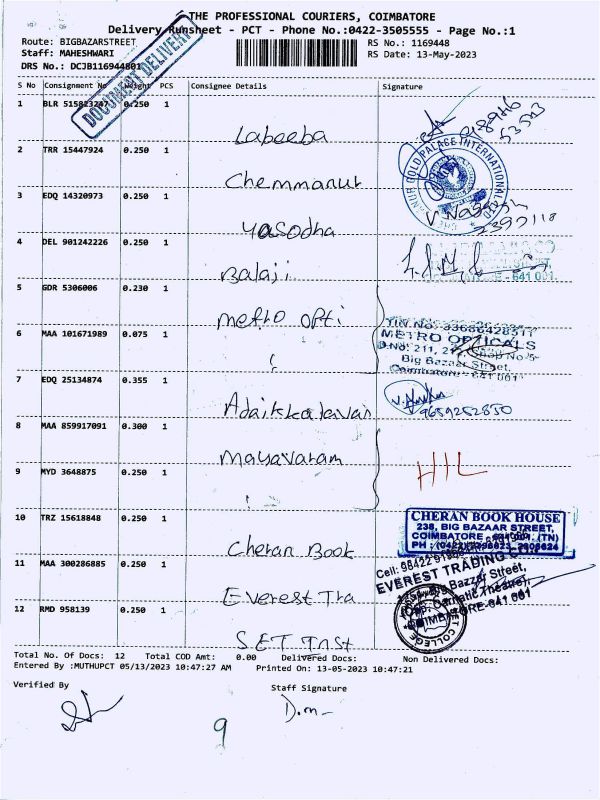 THE PROFESSIONAL COURIERS, COIMBATORE
Delivery Runsheet - PCT - Phone No.:0422-3505555 - Page No.:1
Route: BIGBAZARSTREET
RS No.: 1169448
Staff: MAHESHWARI
RS Date: 13-May-2023
DRS No.: DCJB116944801
DOCUMENT DELIVERY
S No Consignment No Weight PCS Consignee Details Signature
1 BLR 515823247 0.250 1
Labeeba
2 TRR 15447924 0.250 1
Chemmanur
GOLD PALACE INTERNATIONAL
3 EDQ 14320973 0.250 1
Yasodha
4 DEL 901242226 0.250 1
Balaji
641 001
5 GDR 5306006 0.230 1
metro opti
6 MAA 101671989 0.075 1
METRO OPTICALS
Big Bazaar Street,
Coimbatore - 641 001
7 EDQ 25134874 0.355 1
9659252850
Adaikkalavan
8 MAA 859917091 0.300 1
mayavaram
HIL
9 MYD 3648875 0.250 1
10 TRZ 15618848 0.250 1
CHERAN BOOK HOUSE
238, BIG BAZAAR STREET,
COIMBATORE - 641 001. (TN)
Cheran Book
11 MAA 300286885 0.250 1
EVEREST TRADING CO.
Big Bazaar Street,
COIMBATORE-641 001
Everest Tra
12 RMD 958139 0.250 1
COLLEGE
S.E.T Inst
Total No. Of Docs: 12 Total COD Amt: 0.00 Delivered Docs: Non Delivered Docs:
Entered By :MUTHUPCT 05/13/2023 10:47:27 AM Printed On: 13-05-2023 10:47:21
Verified By Staff Signature
D.m
9